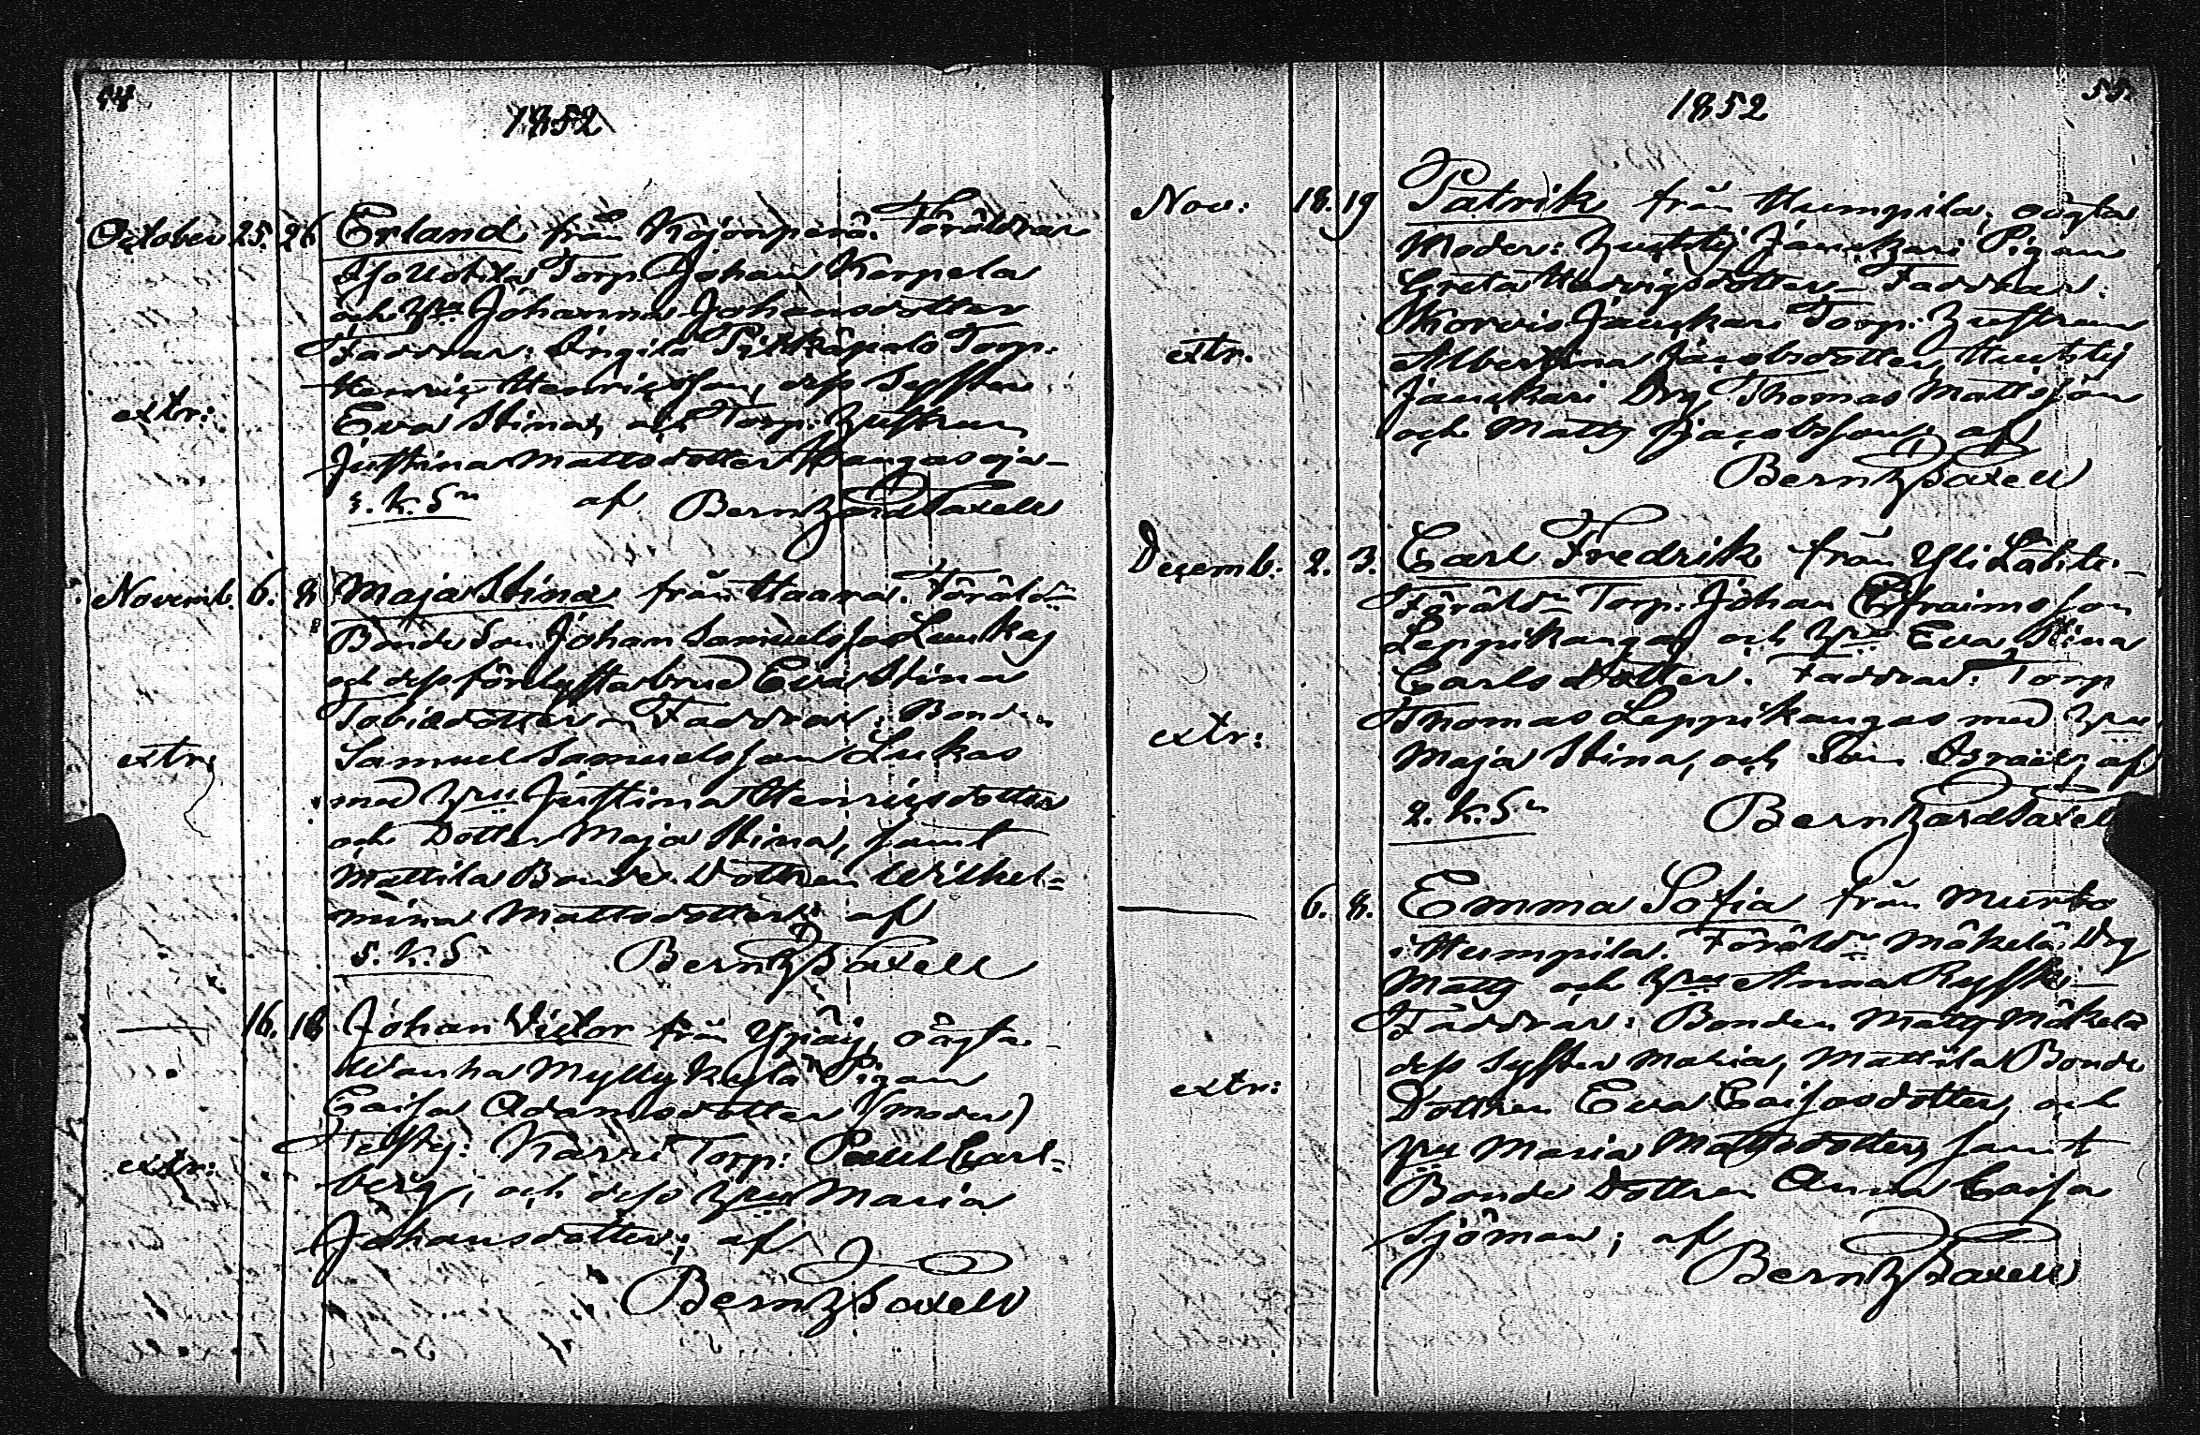 54
1852
October 25. 26. Erland från Kojonperä. Föräldrar
Torp: Johan Korpela
och Johanna Johansdotter
Faddrar: Torp:
Henric Henricsson, dess Syster
extr:
Eva Stina, och Torp: hustrun
Justina Mattsdotter Kangasoja
af Berntzard Saxell
Novemb. 6. 8. Maja Stina från Haara. Föräld:
Bonde Son Johan Samuelsson
och dess förlofsta brud Eva Stina
Tobiædotter Faddrar: Bonden
extr:
Samuel Samuelsson Lukas
med hru Justina Henricsdotter
och Dotter Maja Stina, samt
Mattila Bonde Dottren Wilhel=
mina Mattsdotter; af
5. K. S.
Berntz Saxell
16. 18. Johan Victor från Ypäj, oägta
Wanha Myllykylä Pigan
Caisa Adamsdotter (moder)
Torp: Carl=
extr:
berg, och dess hru Maria
Johansdotter; af
Berntz Saxell
55.
1852
Nov: 18. 19 Patrik från Humpila; oägta
Moder: Pigan
Greta Hedvigsdotter Faddrar:
Torp: hustrun
extr.
Albertina Jacobsdotter,
Drg Thomas Mattsson
och Matts Jacobsson; af
Berntz Saxell
Decemb: 2. 3. Carl Fredrik från Yli
Föräld: Torp: Johan Efraimsson
Leppikangas och hru Eva Stina
Carlsdotter. Faddrar: Torp
extr:
Thomas Leppikangas med hru
Maja Stina, och Son Israel; af
2. K. S.
Berntzard Saxell
6. 8. Emma Sofia från Murto
i Humpila. Föräld: Mäkelä Drg
Matts och hru Anna
Faddrar: Bonden Matts Mäkelä
extr:
dess Syster Maria, Mattila Bonde
Dottren Eva Caisasdotter, och
Maria Mattsdotter, samt
Bonde Dottren Anna Caisa
Sjöman; af
Berntz Saxell